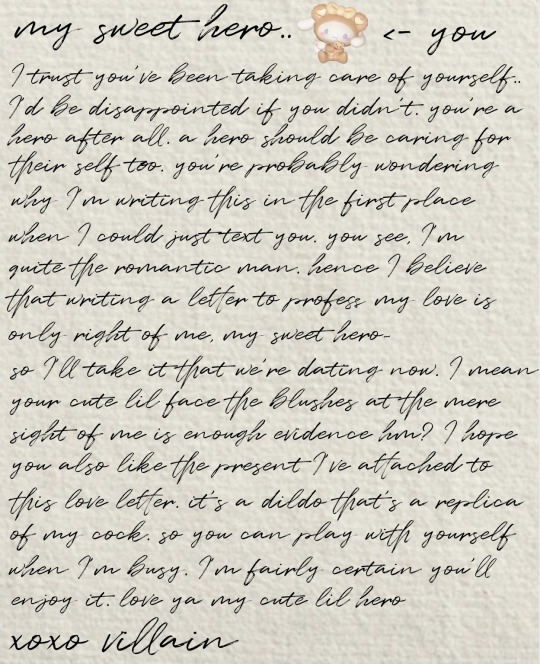 my sweet hero.. <- you
I trust you've been taking care of yourself..
I'd be disappointed if you didn't. you're a
hero after all. a hero should be caring for
their self too. you're probably wondering
why I'm writing this in the first place
when I could just text you. you see, I'm
quite the romantic man. hence I believe
that writing a letter to profess my love is
only right of me, my sweet hero-
so I'll take it that we're dating now. I mean
your cute lil face the blushes at the mere
sight of me is enough evidence hm? I hope
you also like the present I've attached to
this love letter. it's a dildo that's a replica
of my cock. so you can play with yourself
when I'm busy. I'm fairly certain you'll
enjoy it. love ya my cute lil hero
xoxo villain